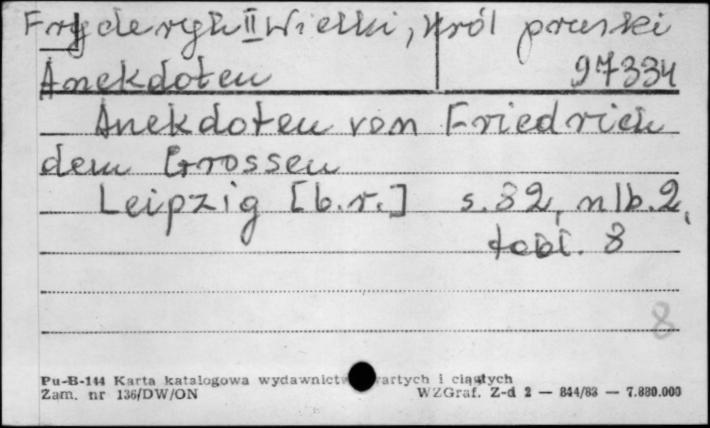 Fryderyk II Wielki, król pruski
Anekdoten 97334
Anekdoten von Friedrich
dem Grossen
Leipzig [b.r.] s. 82, nlb. 2,
tabl. 8
8
Pu-B-144 Karta katalogowa wydawnictw zwartych i ciągłych
Zam. nr 136/DW/ON WZGraf. Z-d 2 — 844/83 — 7.880.000